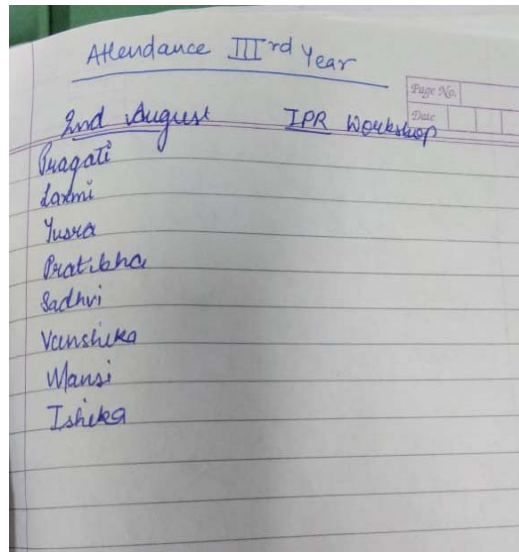 Attendance IIIrd Year
Page No.
Date
2nd August IPR Workshop
Pragati
Laxmi
Yusra
Pratibha
Sadhvi
Vanshika
Mansi
Isheka